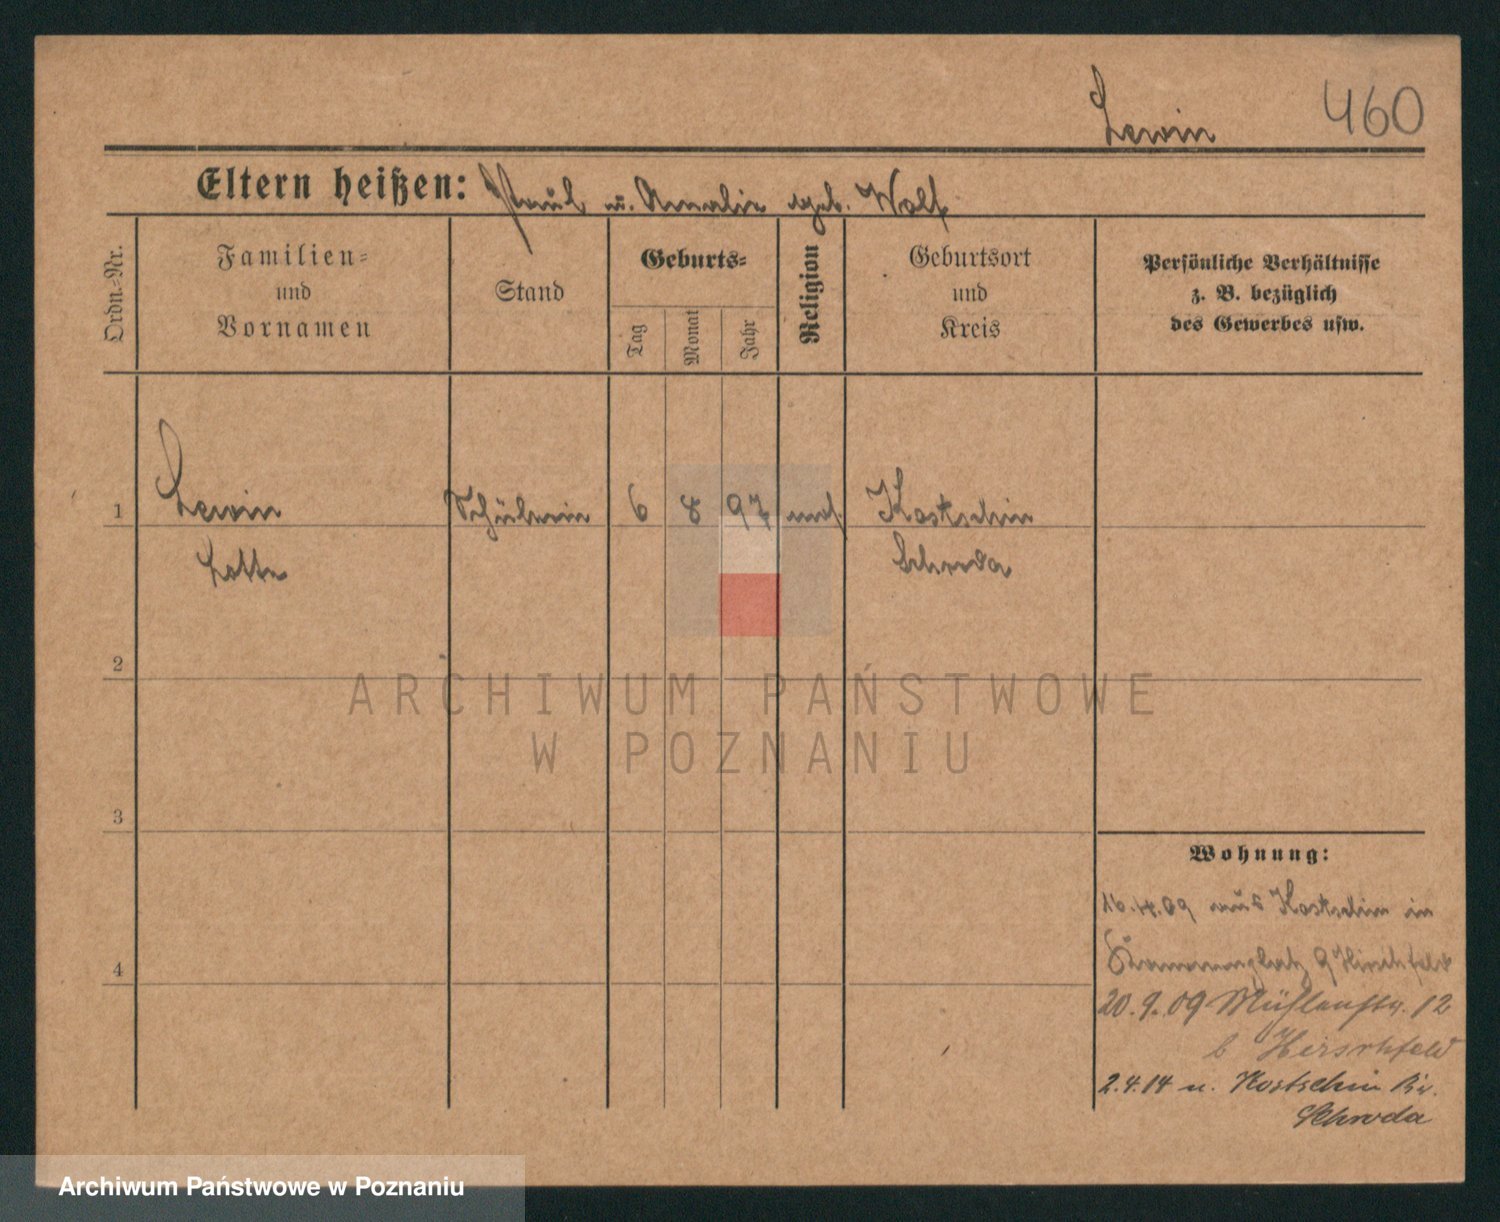 Lewin 460
Eltern heißen: Paul u. Amalie geb. Wolf
Ordn.-Nr.
Familien-
und
Vornamen
Stand
Geburts-
Tag
Monat
Jahr
Religion
Geburtsort
und
Kreis
Persönliche Verhältnisse
z. B. bezüglich
des Gewerbes usw.
1 Lewin Schülerin 6 8 97 mos. Kostschin
Lotte Schroda
2
ARCHIWUM PAŃSTWOWE
W POZNANIU
3
Wohnung:
16.4.09 aus Kostschin in
4 9 Hirschfeld
20.9.09 Mühlenstr. 12
b Hirschfeld
2.4.14 n. Kostschin Kr.
Schroda
Archiwum Państwowe w Poznaniu